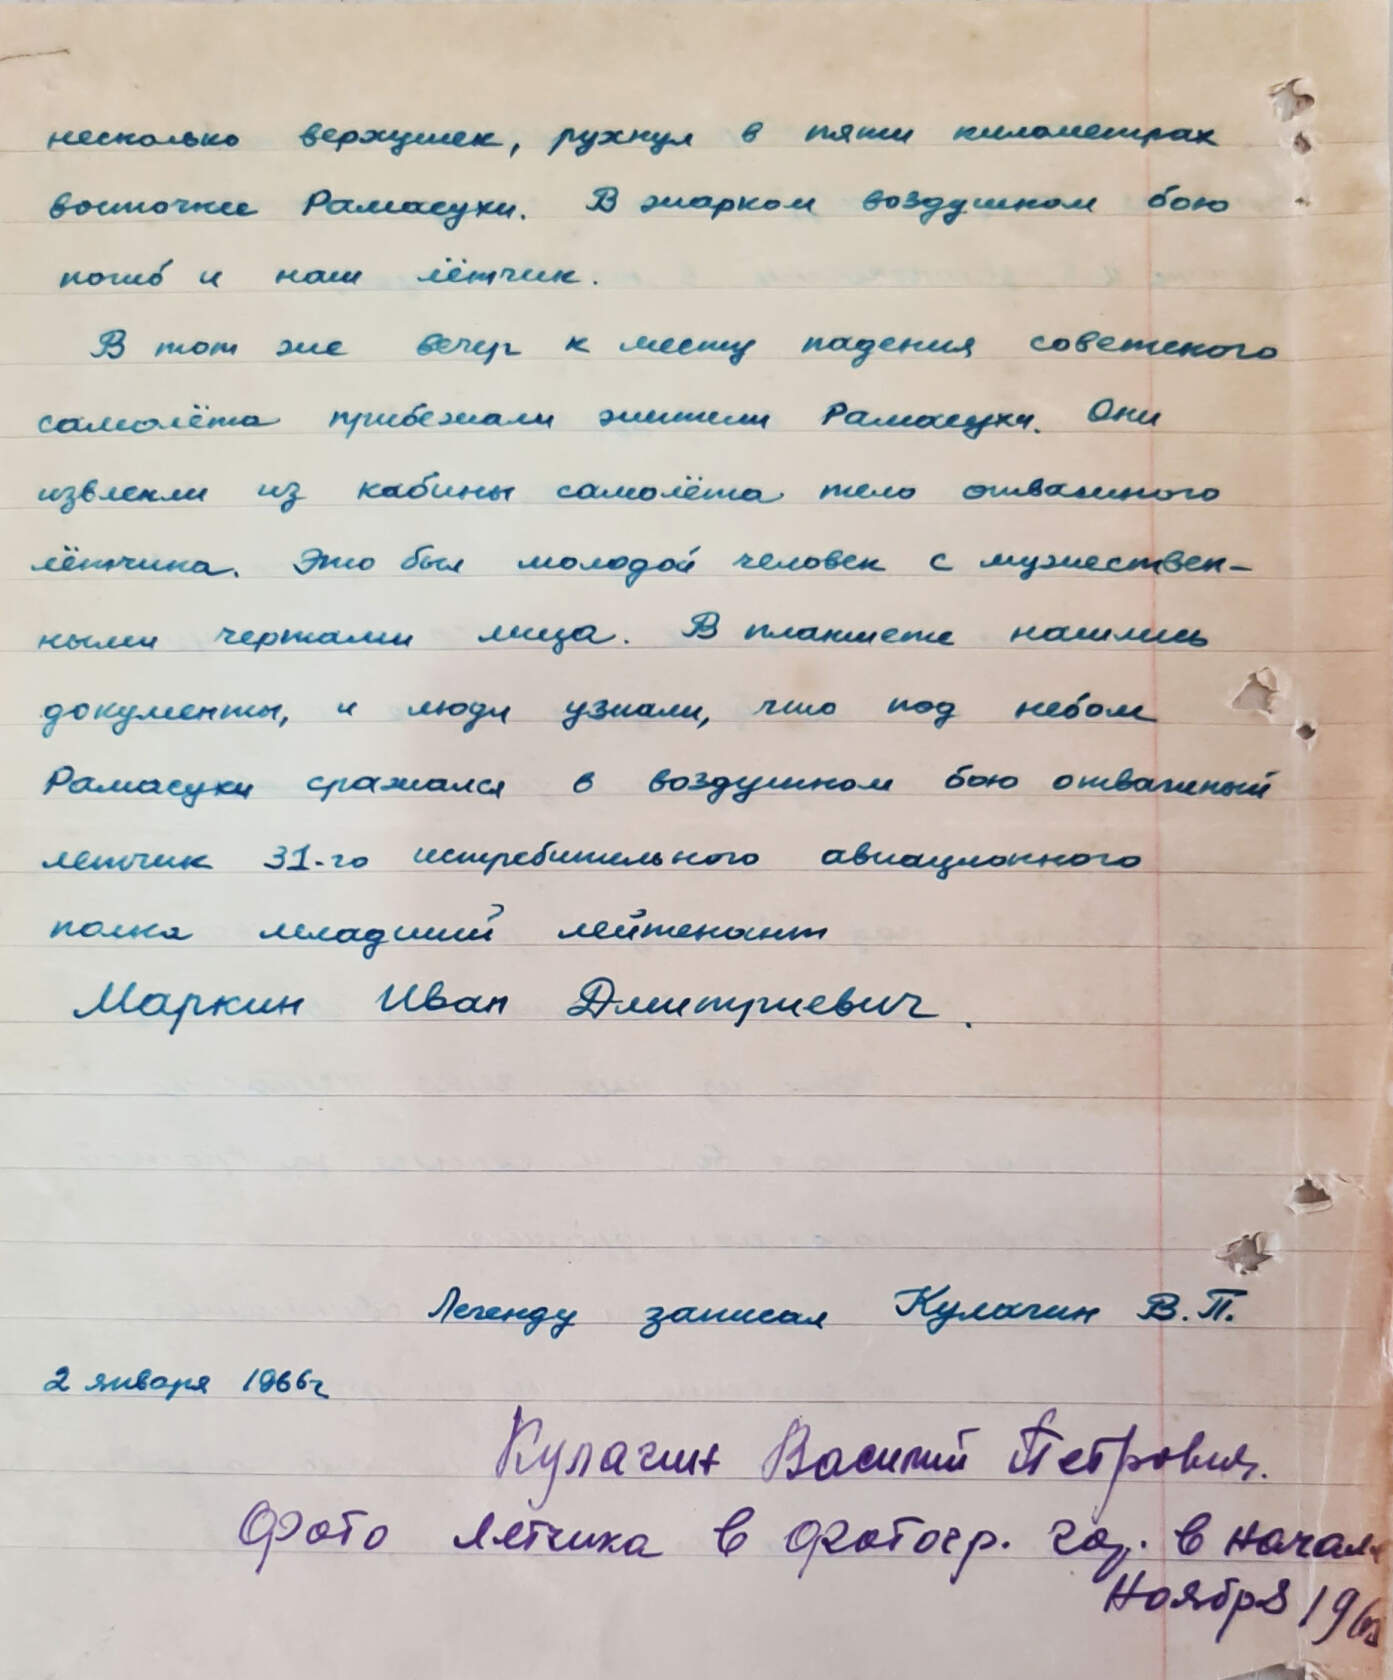 несколько верхушек, рухнул в пяти километрах
восточнее Рамасухи. В жарком воздушном бою
погиб и наш лётчик.
В тот же вечер к месту падения советского
самолёта прибежали жители Рамасухи. Они
извлекли из кабины самолёта тело отважного
лётчика. Это был молодой человек с мужествен-
ными чертами лица. В планшете нашлись
документы, и люди узнали, что под небом
Рамасухи сражался в воздушном бою отважный
летчик 31-го истребительного авиационного
полка младший лейтенант
Маркин Иван Дмитриевич.
Легенду записал Кулагин В.П.
2 января 1966г
Кулагин Василий Петрович.
Фото лётчика в фотогр. газ. в начале
ноября